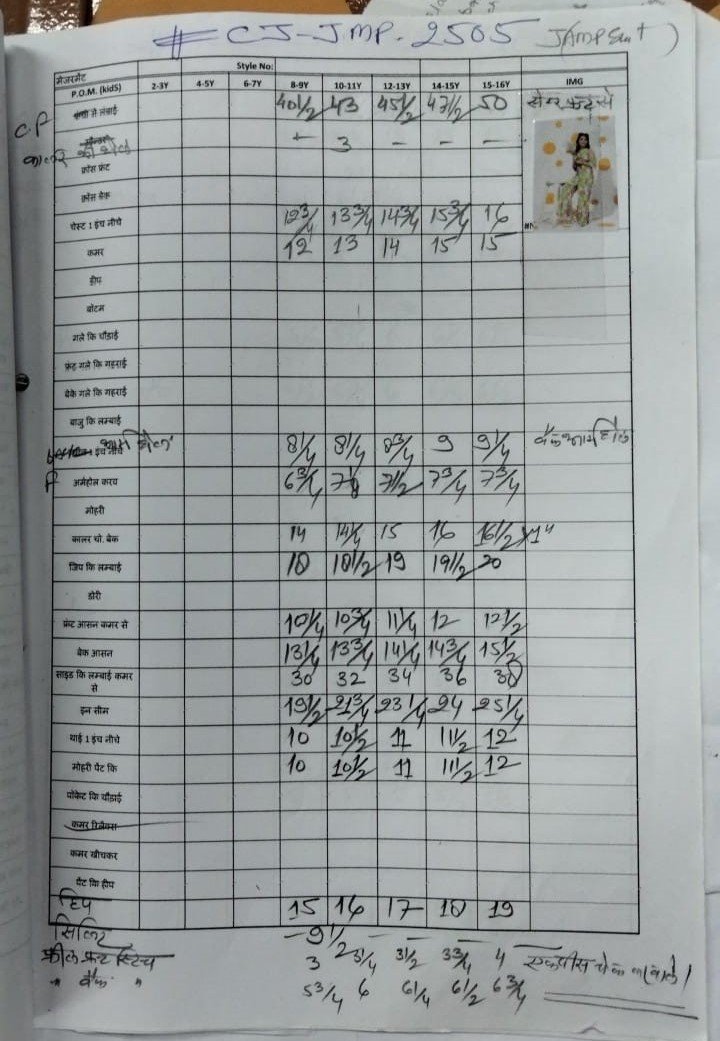 # CJ-JMP. 2505 JAMPSuit)
Style No:
मेजरमेंट
P.O.M. (kidS) 2-3Y 4-5Y 6-7Y 8-9Y 10-11Y 12-13Y 14-15Y 15-16Y IMG
C.F से लंबाई 40 1/2 43 45 1/2 47 1/2 50
कालर 3 - - -
क्रॉस फ्रंट
क्रॉस बेक
चेस्ट 1 इंच नीचे 12 3/4 13 3/4 14 3/4 15 3/4 16
कमर 12 13 14 15 15
हीप
बॉटम
गले कि चौड़ाई
फ्रंट गले कि गहराई
बेक गले कि गहराई
बाजु कि लम्बाई
इंच नीचे 8 1/4 8 1/4 8 3/4 9 9 1/4
F अर्महोल करव 6 3/4 7 1/2 7 3/4 7 3/4
मोहरी
कालर चो. बेक 14 14 1/2 15 16 16 1/2 x 1"
जिप कि लम्बाई 18 18 1/2 19 19 1/2 20
डोरी
फ्रंट आसन कमर से 10 1/4 10 3/4 11 1/4 12 12 1/2
बेक आसन 13 1/4 13 3/4 14 1/4 14 3/4 15 1/2
साइड कि लम्बाई कमर से 30 32 34 36 38
इन सीम 19 1/2 21 3/4 23 1/4 24 25 1/4
थाई 1 इंच नीचे 10 10 1/2 11 11 1/2 12
मोहरी पैंट कि 10 10 1/2 11 11 1/2 12
पॉकेट कि चौड़ाई
कमर रिलैक्स
कमर खीचकर
पैंट कि हीप
हिप 15 16 17 18 19
- 9 1/2 - - -
फ्रील फ्रन्ट स्टिच 3 3 1/4 3 1/2 3 3/4 4
" बैक " 5 3/4 6 6 1/4 6 1/2 6 3/4